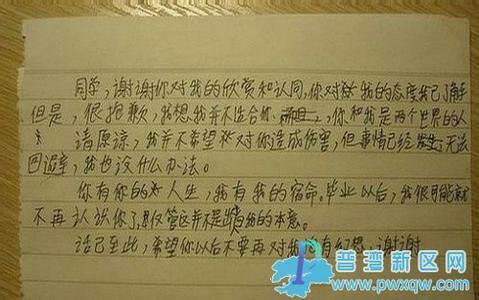 同学，谢谢你对我的欣赏和认同，你对我的态度我已了解
但是，很抱歉，我想我并不适合你，而且，你和我是两个世界的人
请原谅，我并不希望对你造成伤害，但事情已经发生，无法
回避，我也没什么办法。
你有你的人生，我有我的宿命。毕业以后，我很可能就
不再认识你了，尽管这并不是出自我的本意。
话已至此，希望你以后不要再对我抱有幻想，谢谢
普湾新区网
www.pwxqw.com